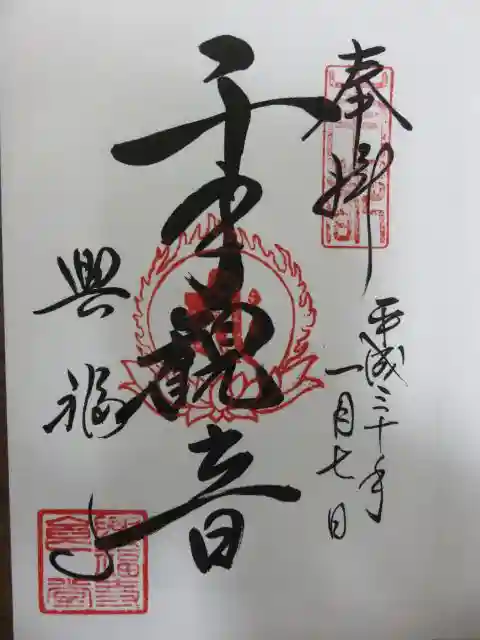 奉拝
平成三十年
一月七日
千手観音
興福寺